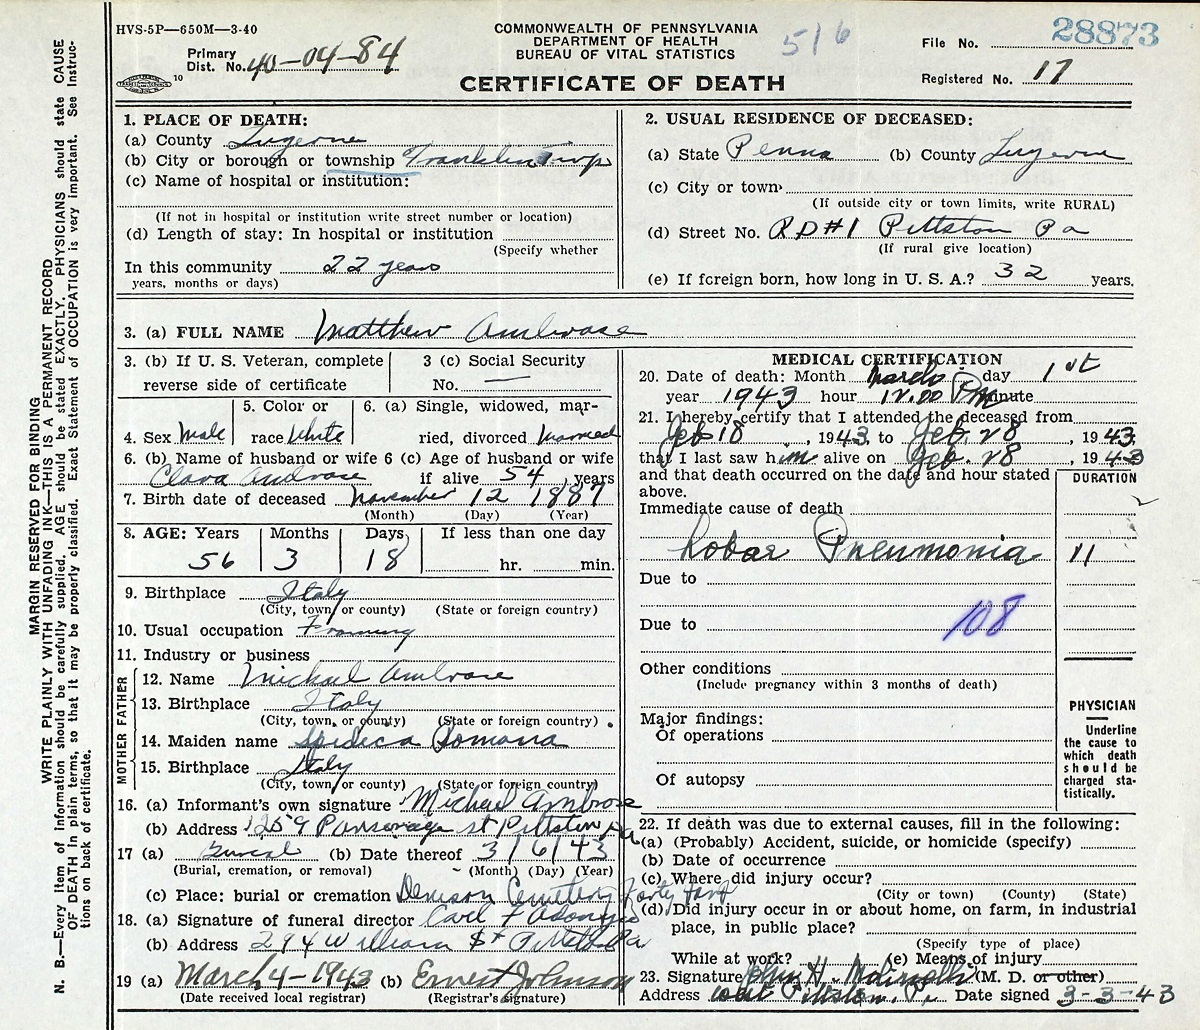 HVS-5P—650M—3-40
COMMONWEALTH OF PENNSYLVANIA
DEPARTMENT OF HEALTH
BUREAU OF VITAL STATISTICS
CERTIFICATE OF DEATH
516
Primary
Dist. No. 40-04-84
10
File No. 28873
Registered No. 17
MARGIN RESERVED FOR BINDING
WRITE PLAINLY WITH UNFADING INK—THIS IS A PERMANENT RECORD
N. B.—Every item of information should be carefully supplied. AGE should be stated EXACTLY. PHYSICIANS should state CAUSE
OF DEATH in plain terms, so that it may be properly classified. Exact Statement of OCCUPATION is very important. See Instruc-
tions on back of certificate.
1. PLACE OF DEATH:
(a) County Luzerne
(b) City or borough or township Franklin Twp
(c) Name of hospital or institution:
(If not in hospital or institution write street number or location)
(d) Length of stay: In hospital or institution
(Specify whether
In this community 22 years
years, months or days)
2. USUAL RESIDENCE OF DECEASED:
(a) State Penna (b) County Luzerne
(c) City or town
(If outside city or town limits, write RURAL)
(d) Street No. RD#1 Pittston Pa
(If rural give location)
(e) If foreign born, how long in U. S. A.? 32 years.
3. (a) FULL NAME Matthew Ambrose
3. (b) If U. S. Veteran, complete
reverse side of certificate
3 (c) Social Security
No. —
4. Sex Male
5. Color or
race White
6. (a) Single, widowed, mar-
ried, divorced Married
6. (b) Name of husband or wife
Clara Ambrose
6 (c) Age of husband or wife
if alive 54 years
7. Birth date of deceased November 12 1887
(Month) (Day) (Year)
8. AGE: Years Months Days If less than one day
56 3 18 hr. min.
9. Birthplace Italy
(City, town, or county) (State or foreign country)
10. Usual occupation Farming
11. Industry or business
FATHER
12. Name Michael Ambrose
13. Birthplace Italy
(City, town, or county) (State or foreign country)
MOTHER
14. Maiden name Romana
15. Birthplace Italy
(City, town, or county) (State or foreign country)
16. (a) Informant's own signature Michael Ambrose
(b) Address 1259 Parsonage st Pittston Pa
17 (a) Burial (b) Date thereof 3/6/43
(Burial, cremation, or removal) (Month) (Day) (Year)
(c) Place: burial or cremation Denison Cemetery Forty Fort
18. (a) Signature of funeral director Carl F Adonizio
(b) Address 294 William St Pittston Pa
19 (a) March 4-1943 (b) Ernest Johnson
(Date received local registrar) (Registrar's signature)
MEDICAL CERTIFICATION
20. Date of death: Month March day 1st
year 1943 hour 12.00 PM minute
21. I hereby certify that I attended the deceased from
Feb 18, 1943 to Feb. 28, 1943
that I last saw him alive on Feb. 28, 1943
and that death occurred on the date and hour stated
above.
DURATION
Immediate cause of death
Lobar Pneumonia 11
Due to
Due to
108
Other conditions
(Include pregnancy within 3 months of death)
Major findings:
Of operations
Of autopsy
PHYSICIAN
Underline
the cause to
which death
should be
charged sta-
tistically.
22. If death was due to external causes, fill in the following:
(a) (Probably) Accident, suicide, or homicide (specify)
(b) Date of occurrence
(c) Where did injury occur?
(City or town) (County) (State)
(d) Did injury occur in or about home, on farm, in industrial
place, in public place?
(Specify type of place)
While at work? (e) Means of injury
23. Signature John H. (M. D. or other)
Address West Pittston, Pa Date signed 3-3-43